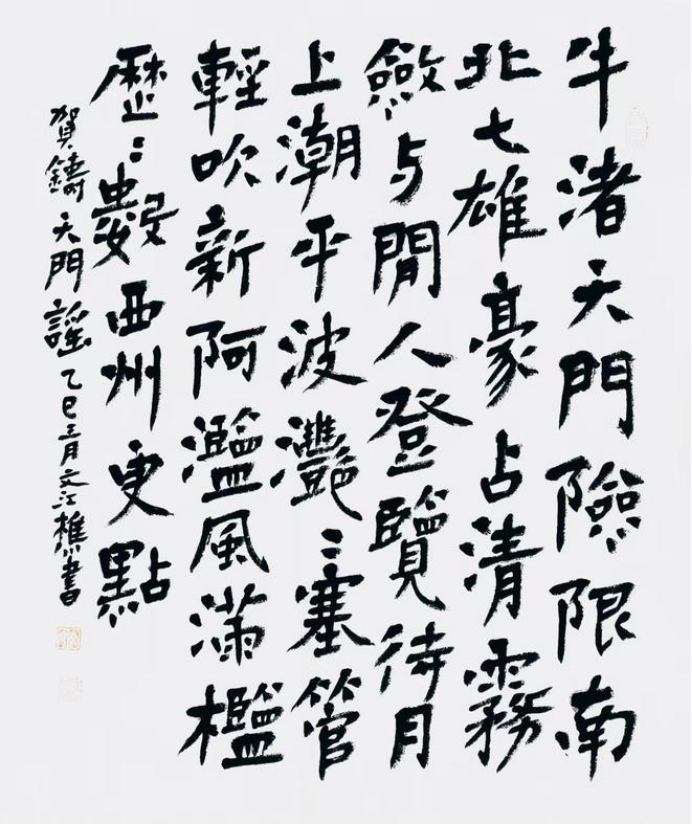 牛渚天門險限南
北七雄豪占清霧
斂与閒人登覽待月
上潮平波灔〻塞管
輕吹新阿濫風滿檻
歷〻數西州更點
賀鑄天門謡乙巳三月文江樵書